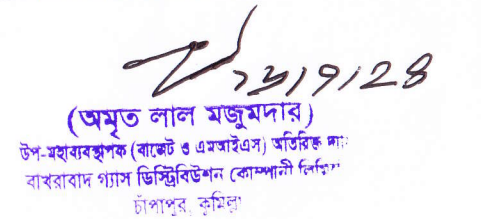 ২১/৭/২৪
(অমৃত লাল মজুমদার)
উপ-মহাব্যবস্থাপক (বাজেট ও এমআইএস) অতিরিক্ত
বাখরাবাদ গ্যাস ডিস্ট্রিবিউশন কোম্পানী
চাঁপাপুর, কুমিল্লা